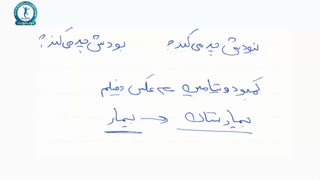 نبودش چه می‌کند؟ بودش چه می‌کند؟
کمبود ویتامین → عکس و فیلم
بیمارستان → بیمار